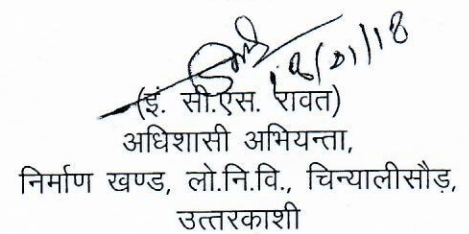 (इं. सी.एस. रावत)
अधिशासी अभियन्ता,
निर्माण खण्ड, लो.नि.वि., चिन्यालीसौड़,
उत्तरकाशी